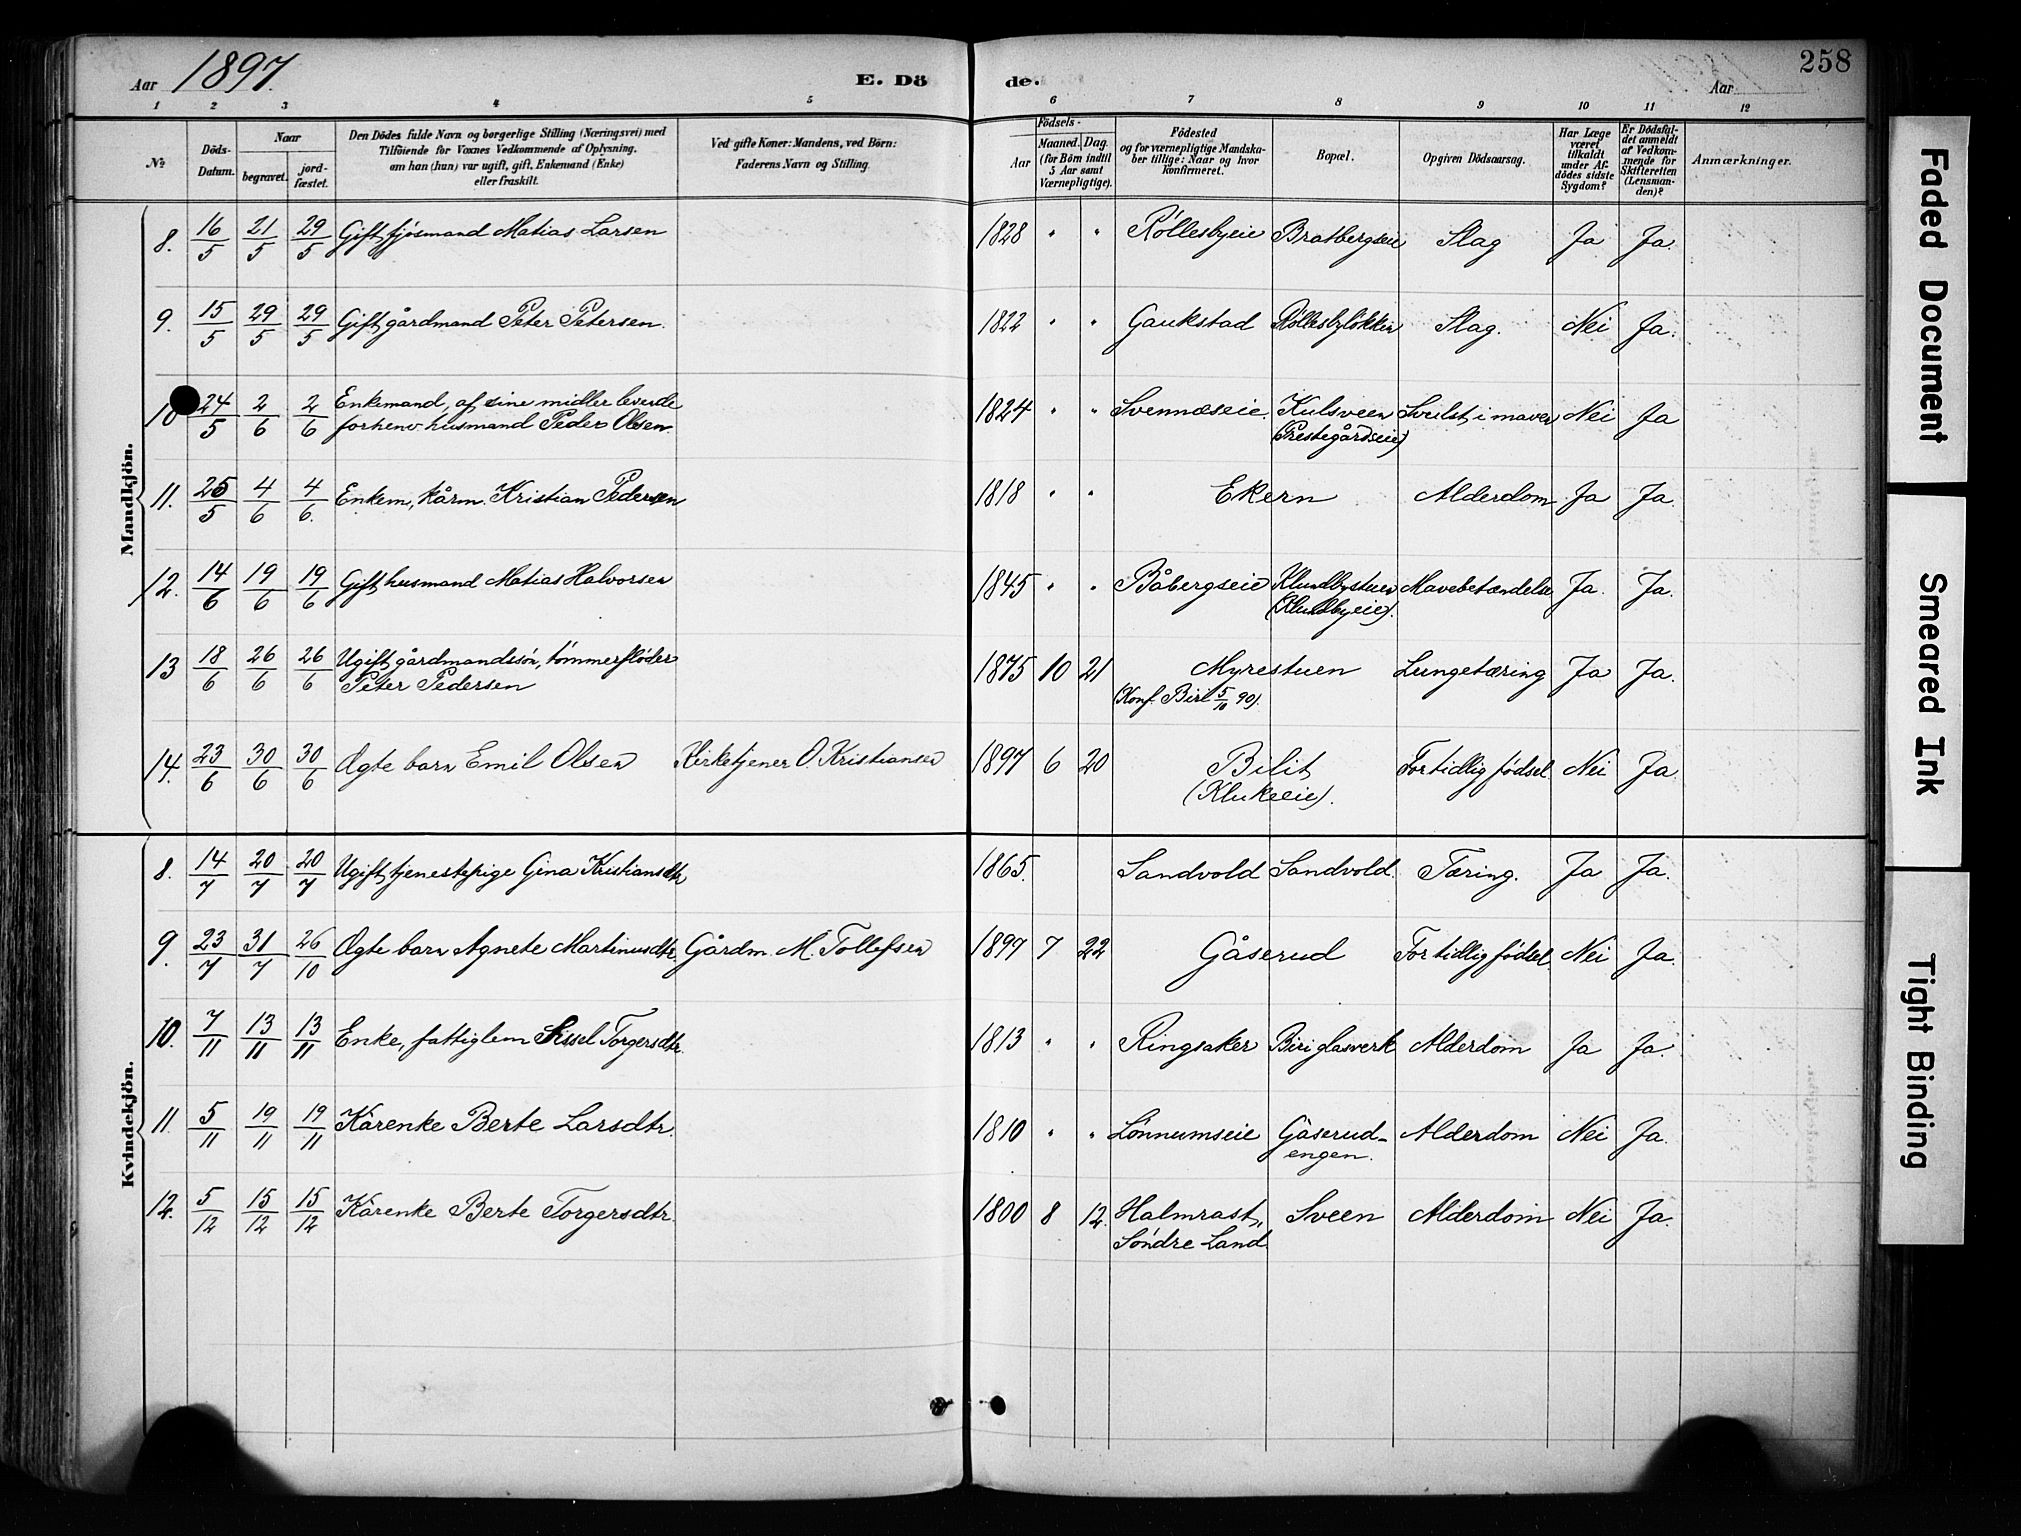 Aar 1897. E. Dö de. Aar 258
1 2 3 4 5 6 7 8 9 10 11 12
№ Döds-Datum. Naar begravet. jord-fæstet. Den Dödes fulde Navn og borgerlige Stilling (Næringsvei) med Tilföiende for Voxnes Vedkommende af Oplysning. om han (hun) var ugift, gift, Enkemand (Enke) eller fraskilt. Ved gifte Koner: Mandens, ved Börn: Faderens Navn og Stilling. Födsels- Aar Maaned. Dag. (for Börn indtil 5 Aar samt Værnepligtige). Födested og for værnepligtige Mandskaber tillige: Naar og hvor konfirmeret. Bopæl. Opgiven Dödsaarsag. Har Læge været tilkaldt under Afdödes sidste Sygdom? Er Dödsfaldet anmeldt af Vedkommende for Skifteretten (Lensmanden)? Anmærkninger.
Mandkjön.
8. 16/5 21/5 29/5 Gift fjösmand Matias Larsen 1828 " " Röllesbyeie Bratbergseie Slag Ja Ja.
9. 15/5 29/5 29/5 Gift gårdmand Peter Petersen. 1822 " " Gaukstad Röllesbylökken Slag. Nei Ja.
10 24/5 2/6 2/6 Enkemand, af sine midler levende
forhenv. husmand Peder Olsen. 1824 " " Svennæseie. Kulsveen Svulst i maven Nei Ja
(Prestegårdseie)
11. 25/5 4/6 4/6. Enkem, kårm. Kristian Pedersen 1818 " " Ekern Alderdom Ja Ja.
12. 14/6 19/6 19/6 Gift husmand Matias Halvorsen 1845 " " Båbergseie Klundbystuen Mavebetændelse Ja. Ja.
(Klundbyeie).
13 18/6 26/6 26/6 Ugift gårdmandssön, tömmerflöder
Peter Pedersen 1875 10 21 Myrestuen Lungetæring Ja Ja.
(Konf. Biri 5/10 90).
14. 23/6 30/6 30/6 Ægte barn Emil Olsen Kirketjener O. Kristiansen 1897 6 20 Bilit For tidlig födsel. Nei Ja.
(Klukeeie).
Kvindekjön.
8. 14/7 20/7 20/7 Ugift tjenestepige Gina Kristiansdtr 1865. Sandvold Sandvold. Tæring. Ja Ja.
9. 23/7 31/7 26/10 Ægte barn Agnete Martinusdtr. Gårdm. M. Tollefsen 1897 7 22 Gåserud For tidlig födsel. Nei Ja.
10. 7/11 13/11 13/11 Enke, fattiglem Sissel Torgersdtr. 1813 " " Ringsaker Biri glasverk Alderdom Ja Ja.
11. 5/11 19/11 19/11 Kårenke Berte Larsdtr. 1810 " " Lönnumseie Gåserud- Alderdom Nei Ja.
engen.
12. 5/12 15/12 15/12 Kårenke Berte Torgersdtr. 1800 8 12. Halmrast, Sveen Alderdom Nei Ja.
Söndre Land.
Faded Document
Smeared Ink
Tight Binding